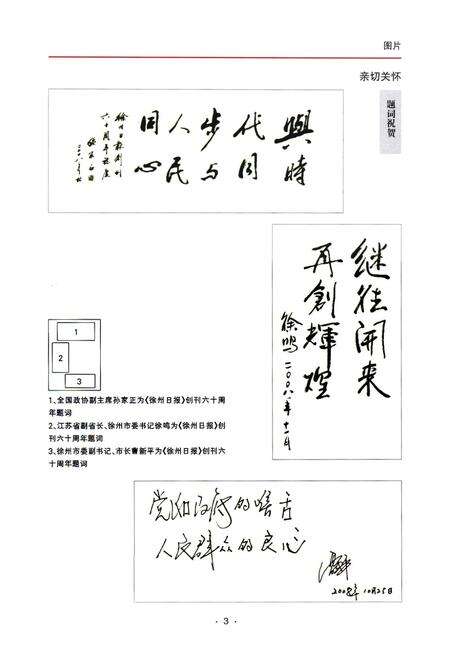 图片
亲切关怀
题词祝贺
與時
代同
步与
人民
同心
徐州日报创刊
六十周年志庆
二〇〇八年
继往开来
再創輝煌
徐鸣二〇〇八年十一月
1
2
3
1、全国政协副主席孙家正为《徐州日报》创刊六十周
年题词
2、江苏省副省长、徐州市委书记徐鸣为《徐州日报》创
刊六十周年题词
3、徐州市委副书记、市长曹新平为《徐州日报》创刊六
十周年题词
党和政府的喉舌
人民群众的良心
2008年10月25日
· 3 ·